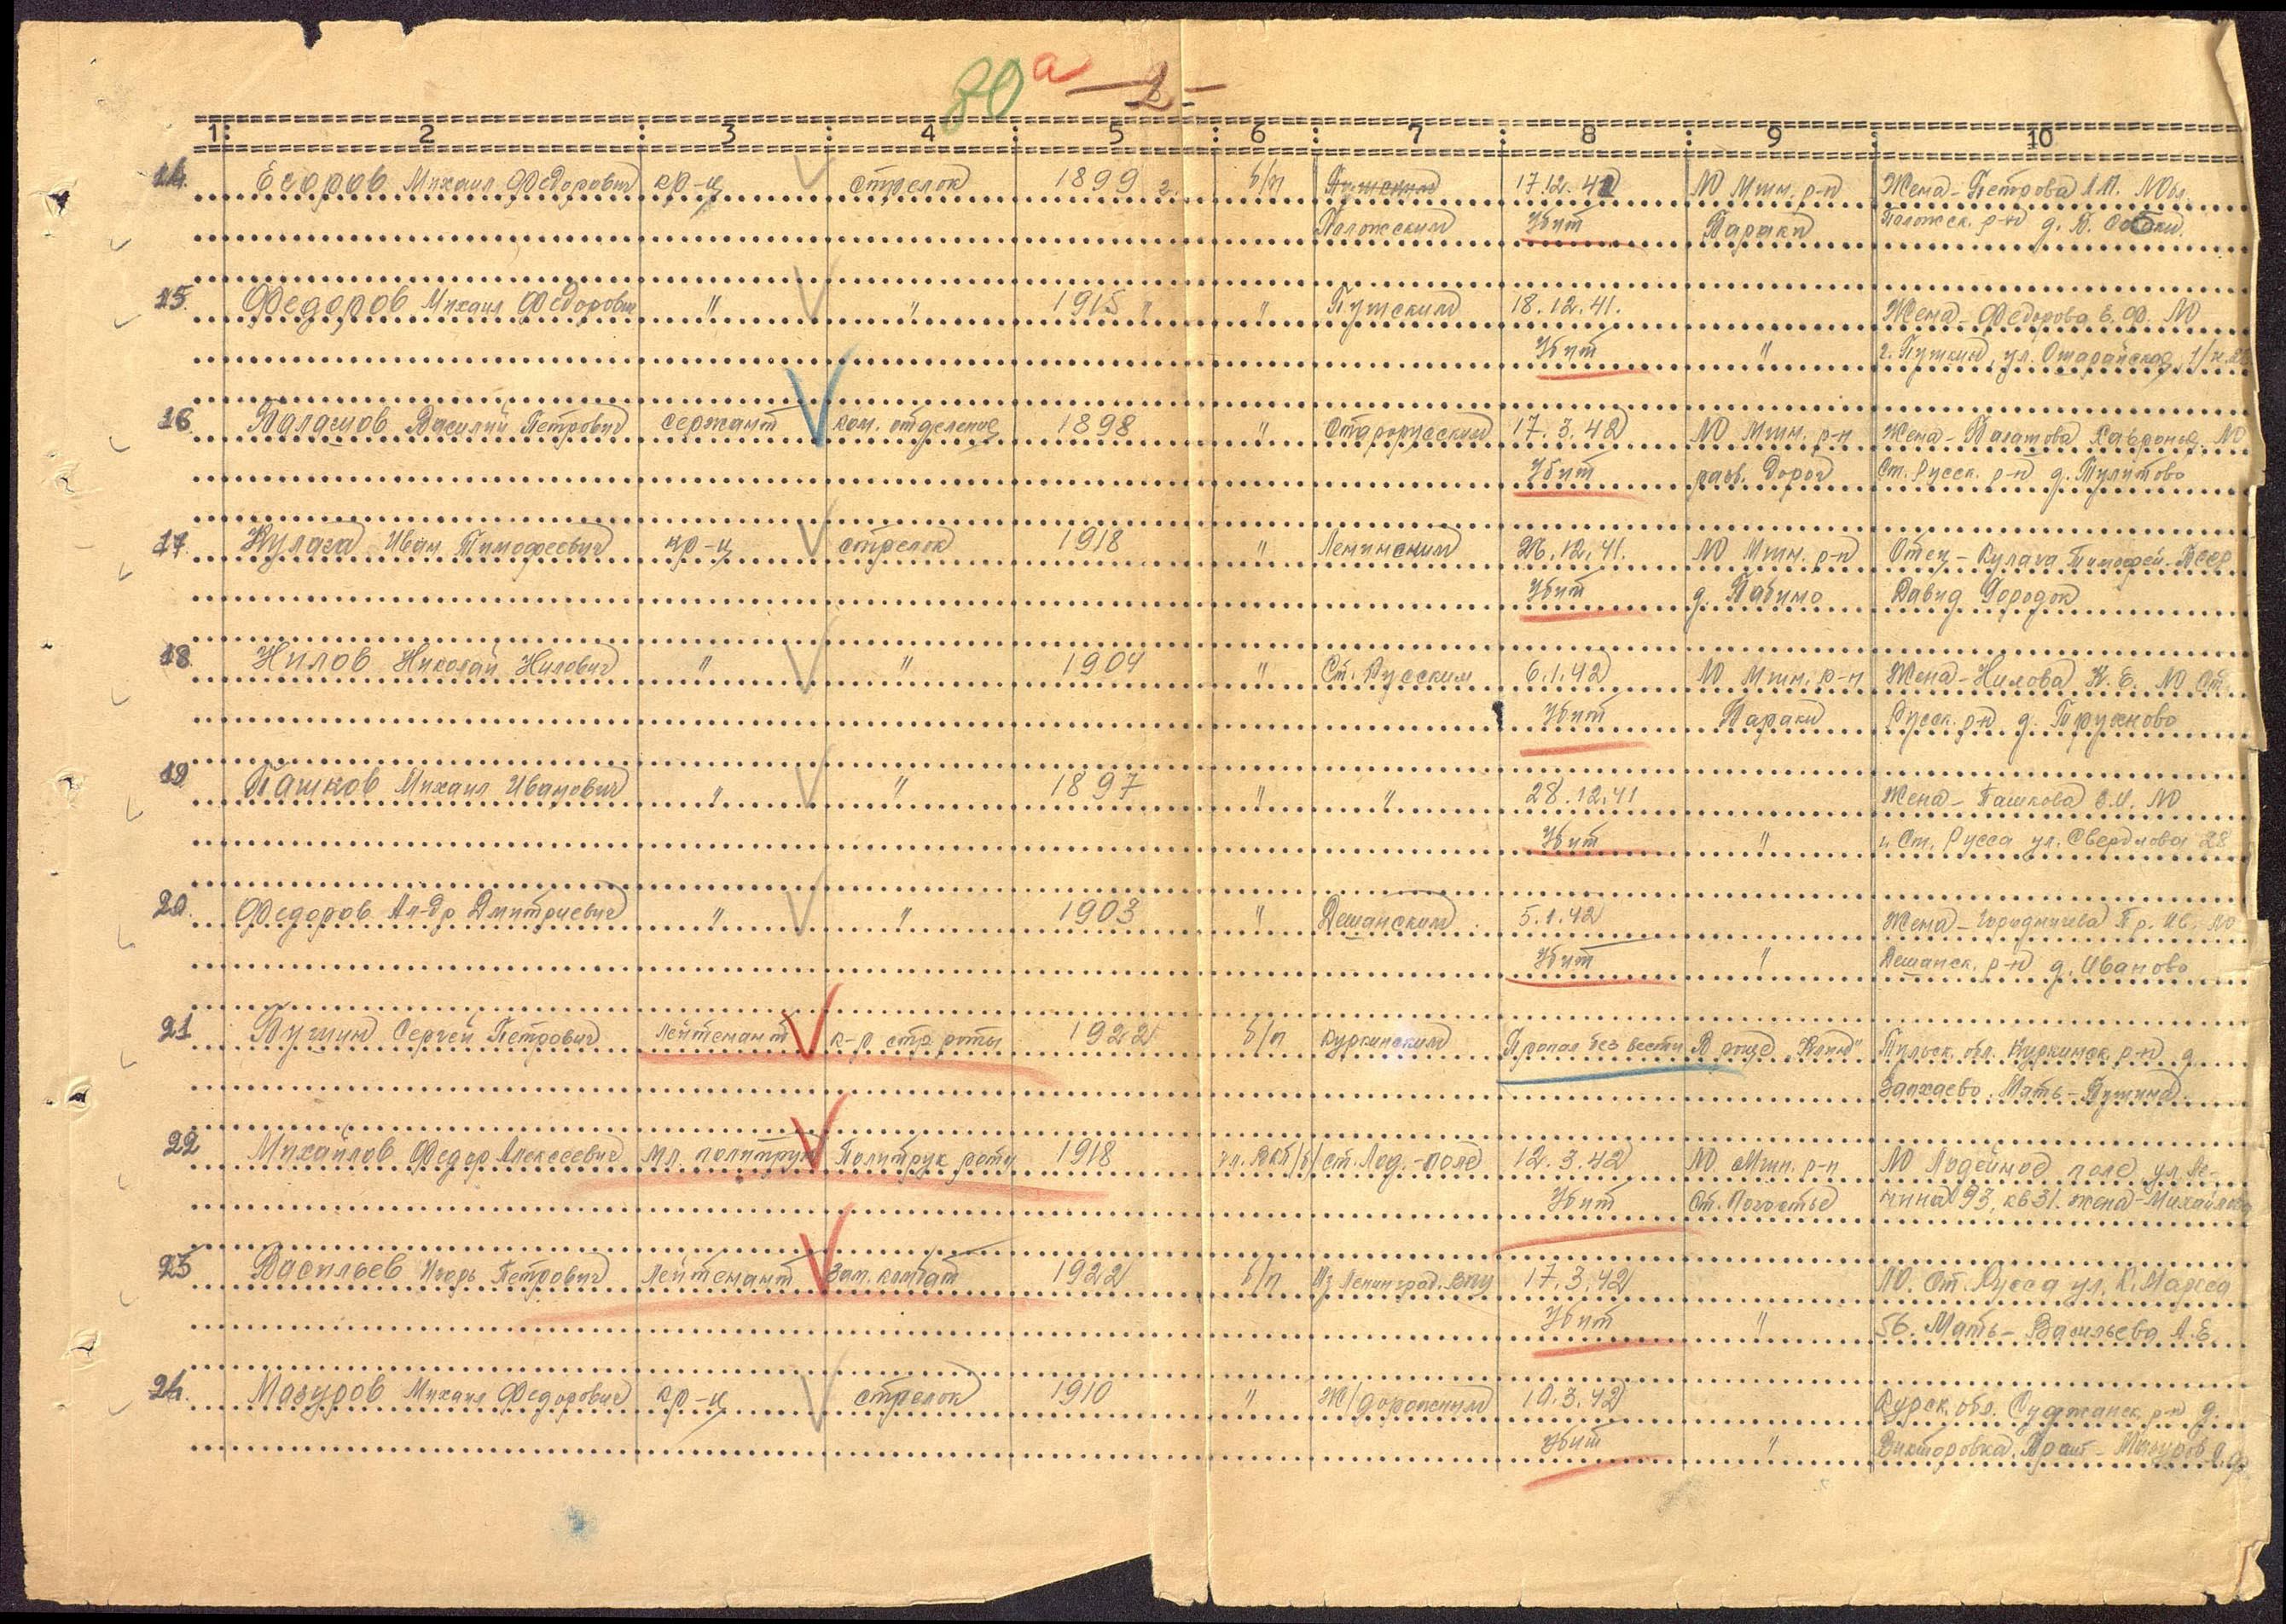 80а -2-
1 2 3 4 5 6 7 8 9 10
14. Егоров Михаил Федорович кр-ц стрелок 1899 г. б/п 17.12.41 ЛО Мгин. р-н Жена - Петрова
Убит Бараки р-н д.
15. Федоров Михаил Федорович " " 1915 " " 18.12.41. Жена - Федорова Е.Ф. ЛО
Убит " г. Пушкин, ул.
16 Балашов Василий Петрович сержант ком. отделение 1898 " Старорусским 17.3.42 ЛО Мгин. р-н Жена - ЛО
Убит разв. дорог Ст. Русск. р-н д.
17. Кулага Иван Тимофеевич кр-ц стрелок 1918 " Ленинским 26.12.41. ЛО Мгин. р-н Отец - Кулага Тимофей БССР
Убит д. Бабино Давид Городок
18. Нилов Николай Нилович " " 1904 " Ст. Русским 6.1.42 ЛО Мгин. р-н Жена - Нилова К.Е. ЛО Ст.
Убит Бараки Русск. р-н д.
19 Пашков Михаил Иванович " " 1897 " " 28.12.41 Жена - Пашкова ЛО
Убит " г. Ст. Русса ул. Свердлова 28
20. Федоров Ал-др Дмитриевич " " 1903 " Дешанским 5.1.42 Жена - Городничева Пр. Ив. ЛО
Убит " Дешанск. р-н д. Иваново
21 Сергей Петрович лейтенант к-р стр. роты 1922 б/п Куркинским Пропал без вести В роще Тульск. обл. Куркинск. р-н д.
Мать -
22 Михайлов Федор Алексеевич мл. политрук Политрук роты 1918 чл. ВКП/б/ ст. Лод.-поле 12.3.42 ЛО Мгин. р-н ЛО Лодейное поле ул. Ле-
Убит ст. Погостье нина 93, кв 31. жена - Михайлова
23 Васильев Игорь Петрович Лейтенант Зам. комбат 1922 б/п Из Ленинград. 17.3.42 ЛО. Ст. Русса ул. К. Маркса
Убит " 56. Мать - Васильева А.Е.
24. Мазуров Михаил Федорович кр-ц стрелок 1910 " Ж/дорожным 10.3.42 Курск. обл. Суджанск. р-н д.
Убит " Викторовка. Брат - Мазуров